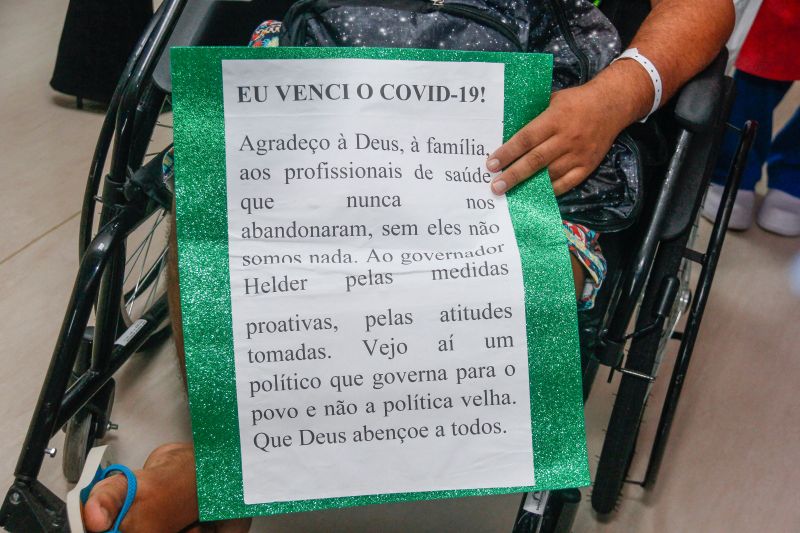 EU VENCI O COVID-19!
Agradeço à Deus, à família,
aos profissionais de saúde
que nunca nos
abandonaram, sem eles não
somos nada. Ao governador
Helder pelas medidas
proativas, pelas atitudes
tomadas. Vejo aí um
político que governa para o
povo e não a política velha.
Que Deus abençoe a todos.